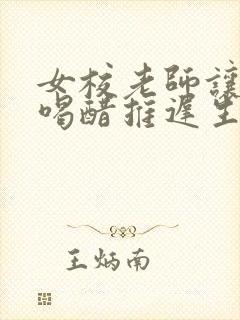 女校老師讓
喝醋推遲生
王炳南